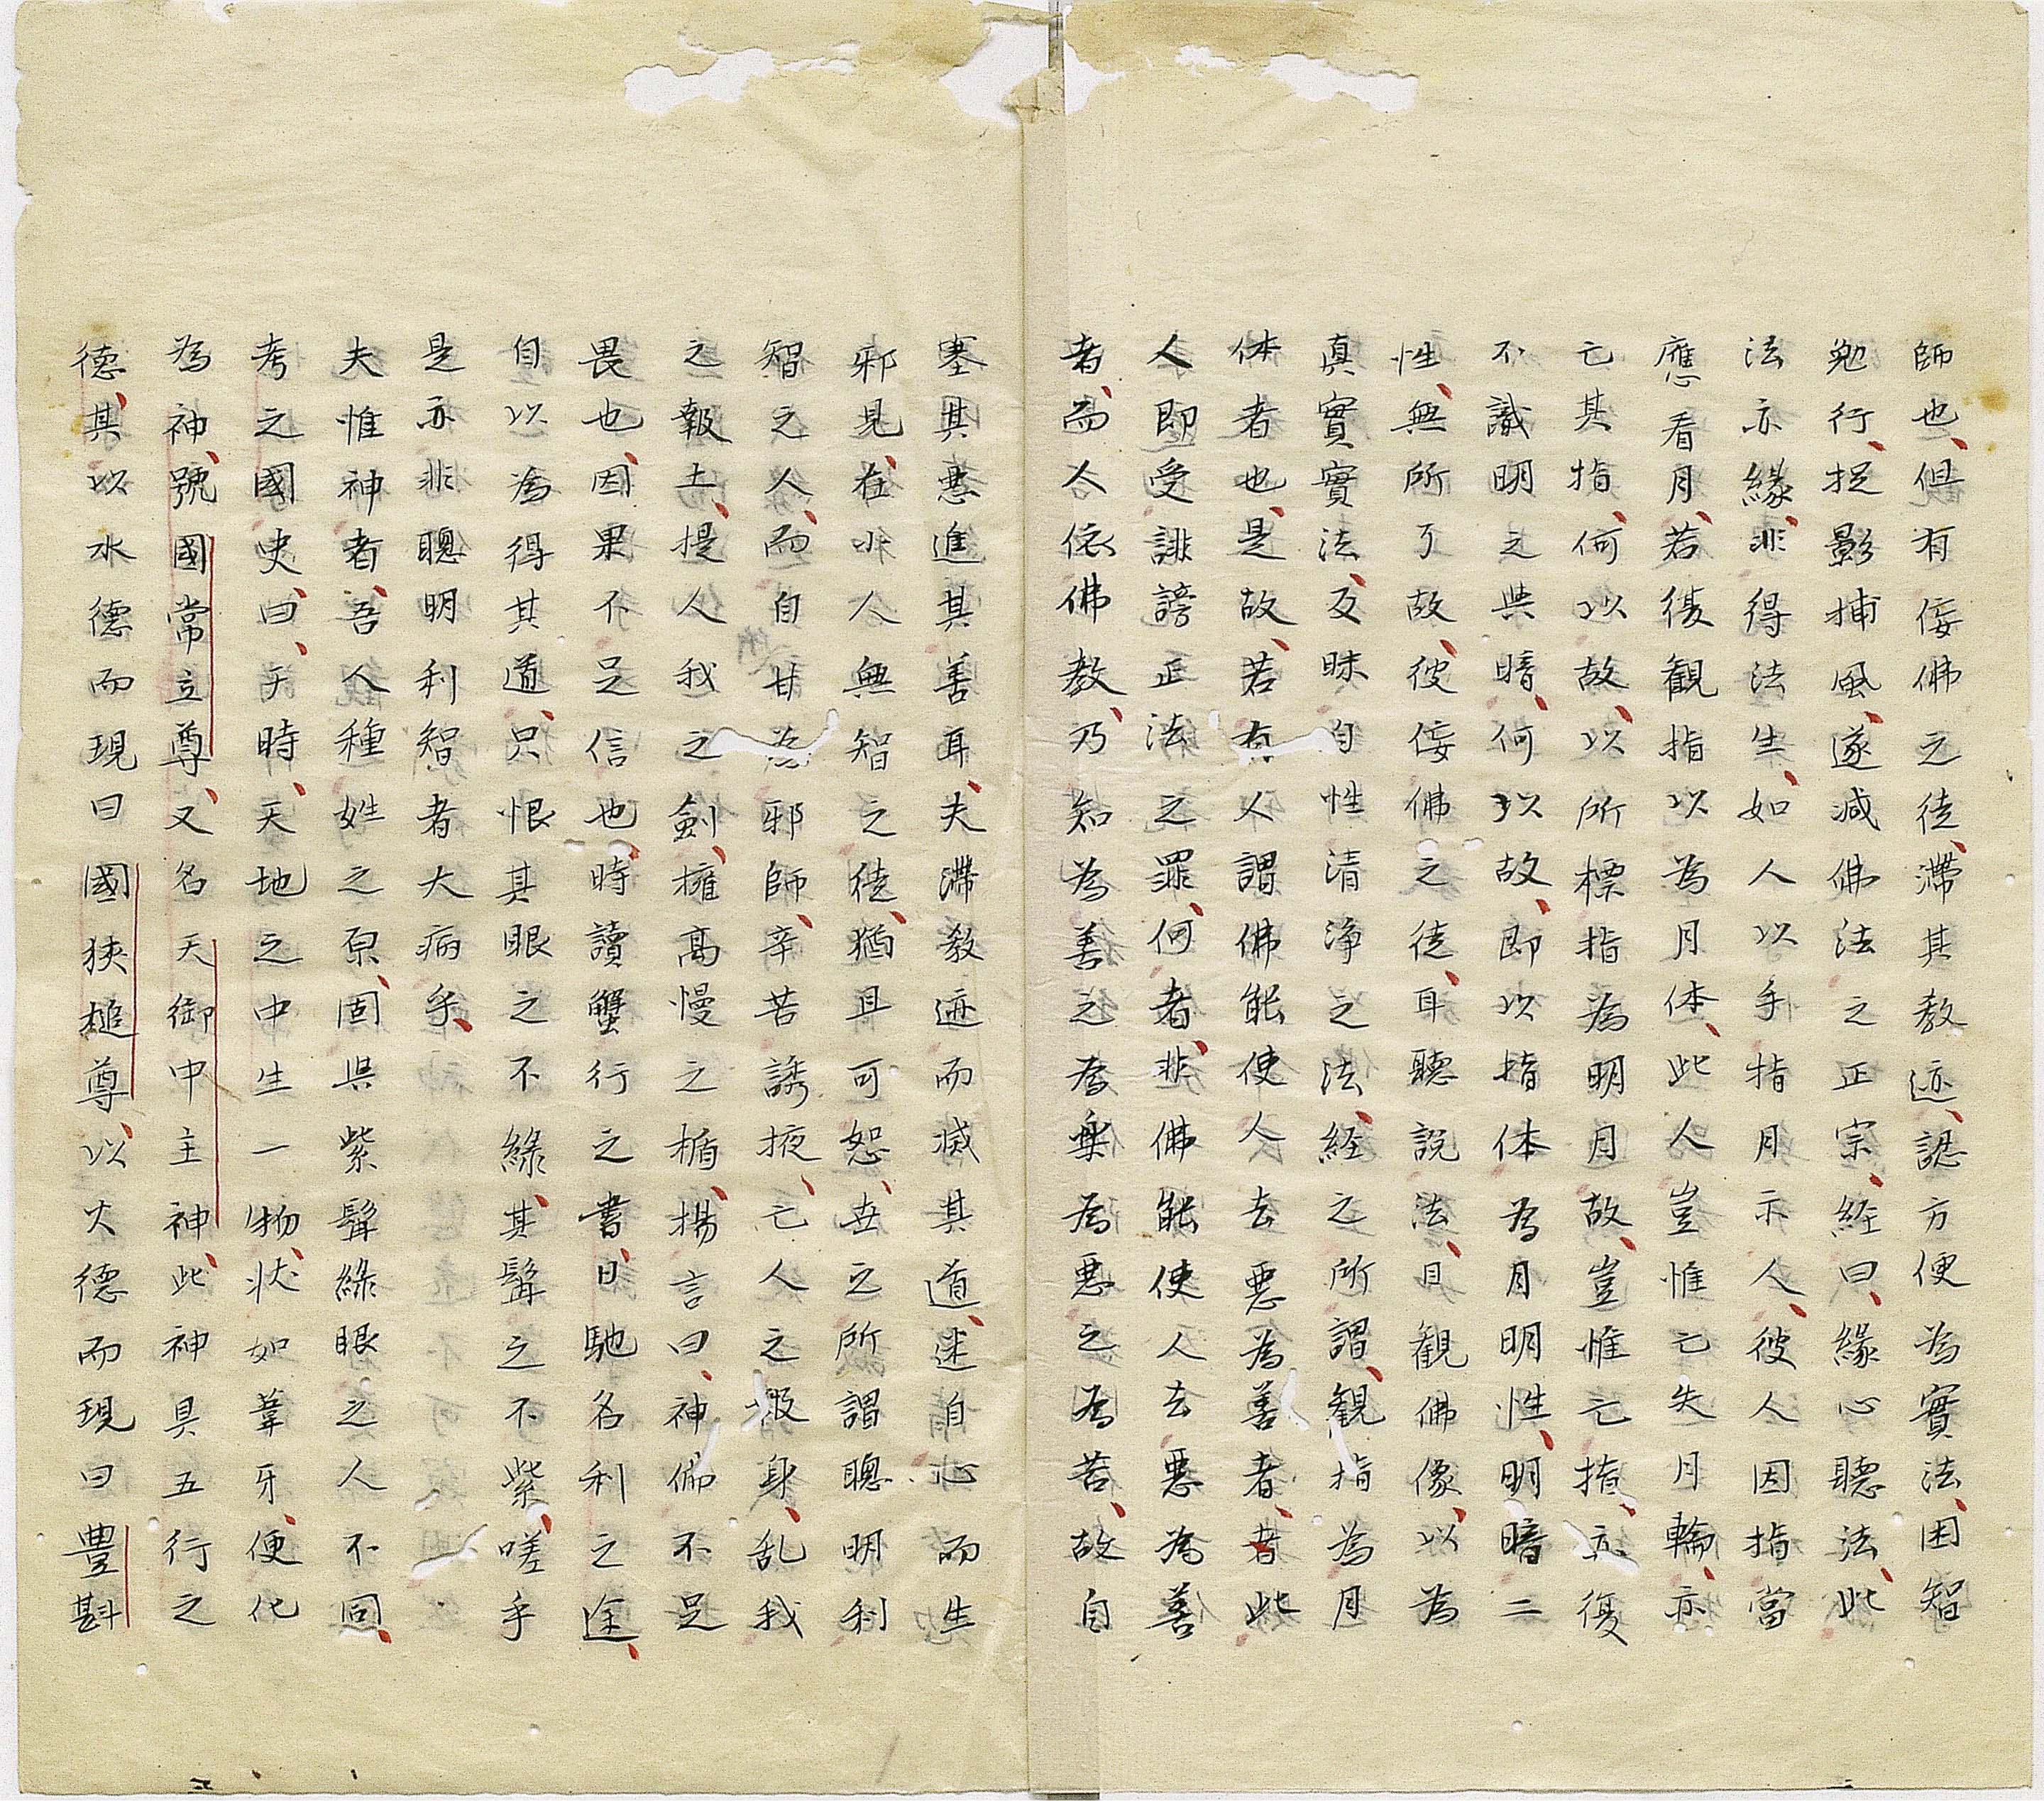 師也、但有佞佛之徒、滯其教迹、認方便為實法、困智
勉行、捉影捕風、遂減佛法之正宗、經曰、緣心聽法、此
法亦緣、非得法生、如人以手指月示人、彼人因指當
應看月、若復観指以為月体、此人豈惟亡失月輪、亦
亡其指、何以故、以所標指為明月故、豈惟亡指、亦復
不識明之與暗、何以故、即以指体為月明性、明暗二
性、無所了故、彼佞佛之徒、耳聽說法、目観佛像、以為
真實實法、反昧自性清淨之法、經之所謂、観指為月
体者也、是故、若有人謂佛能使人去悪為善者、者此
人即受誹謗正法之罪、何者、非佛能使人去悪為善
者、而人依佛教、乃知為善之為樂為悪之為苦、故自
塞其悪進其善耳、夫滯教迹而滅其道、迷自心而生
邪見、在小人無智之徒、猶且可恕、世之所謂聰明利
智之人、而自甘為邪師、辛苦誘掖、亡人之身、乱我
之報土、提人我之劍、擁高慢之楯、揚言曰、神佛不足
畏也、因果不足信也、時讀蟹行之書、日馳名利之途、
自以為得其道、只恨其眼之不綠、其髯之不紫、嗟乎
是亦非聰明利智者大病乎、
夫惟神者、吾人種姓之原、固與紫髯綠眼之人不同、
考之國史、曰、于時、天地之中生一物、状如葦牙、便化
為神、號國常立尊、又名天御中主神、此神具五行之
德、其以水德而現曰國狹槌尊、以火德而現曰豊斟